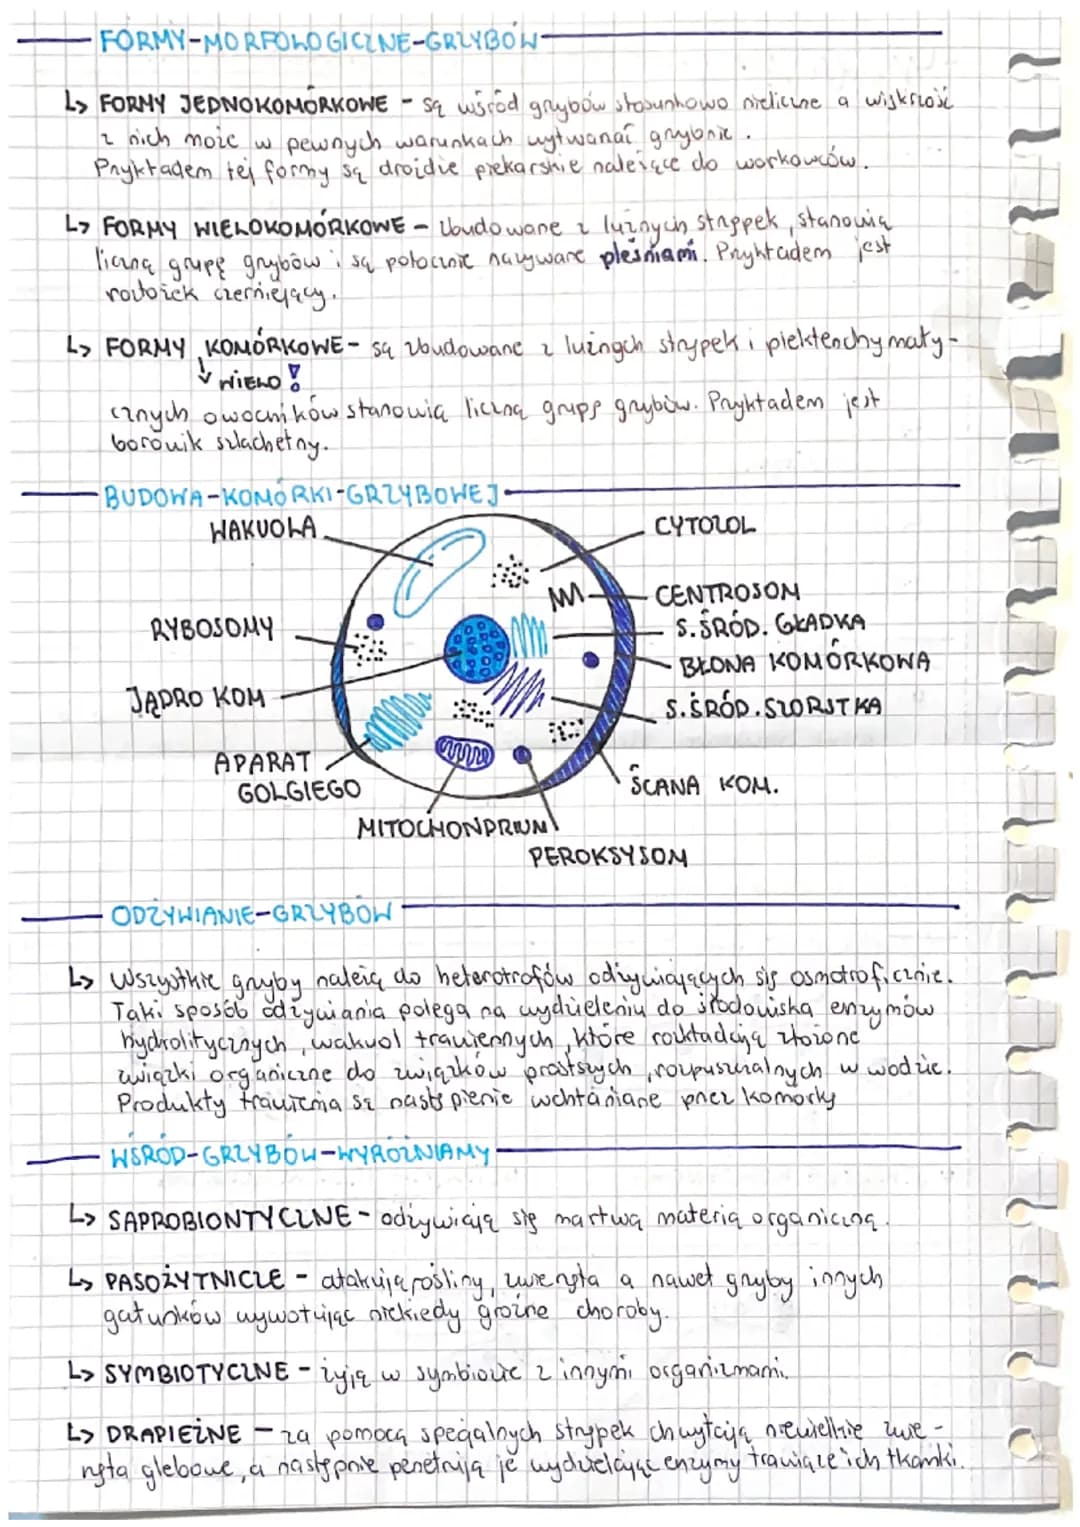 FORMY-MORFOLOGICZNE-GRZYBÓW
↳ FORMY JEDNOKOMÓRKOWE - są wśród grzybów stosunkowo nieliczne a większość
z nich może w pewnych warunkach wytwarzać grzybnie.
Przykładem tej formy są drożdże piekarskie należące do workowców.
↳ FORMY WIELOKOMÓRKOWE - Zbudowane z luźnych strzępek, stanowią
liczną grupę grzybów i są potocznie nazywane pleśniami. Przykładem jest
rozłożek czerniejący.
↳ FORMY KOMÓRKOWE - są zbudowane z luźnych strzępek i plektenchymaty-
↓ WIELO!
cznych owocników stanowią liczną grupę grzybów. Przykładem jest
borowik szlachetny.
BUDOWA-KOMÓRKI-GRZYBOWEJ
WAKUOLA
CYTOZOL
CENTROSOM
RYBOSOMY
S.ŚRÓD. GŁADKA
BŁONA KOMÓRKOWA
JĄDRO KOM
S.ŚRÓD. SZORSTKA
APARAT
GOLGIEGO
ŚCANA KOM.
MITOCHONDRIUM
PEROKSYSOM
ODŻYWIANIE-GRZYBÓW
↳ Wszystkie grzyby należą do heterotrofów odżywiających się osmotroficznie.
Taki sposób odżywiania polega na wydzieleniu do środowiska enzymów
hydrolitycznych, wakuol trawiennych, które rozkładają złożone
związki organiczne do związków prostszych, rozpuszczalnych w wodzie.
Produkty trawienia są następienie wchłaniane przez komórky
WŚRÓD-GRZYBÓW-WYRÓŻNIAMY
↳ SAPROBIONTYCZNE - odżywiają się martwą materią organiczną.
↳ PASOŻYTNICZE - atakują rośliny, zwierzęta a nawet grzyby innych
gatunków wywołując niekiedy groźne choroby.
↳ SYMBIOTYCZNE - żyją w symbiozie z innymi organizmami.
↳ DRAPIEŻNE - za pomocą specjalnych strzępek chwytają niewielkie zwie-
rzęta glebowe, a następnie penetrują je wydzielając enzymy trawiące ich tkanki.